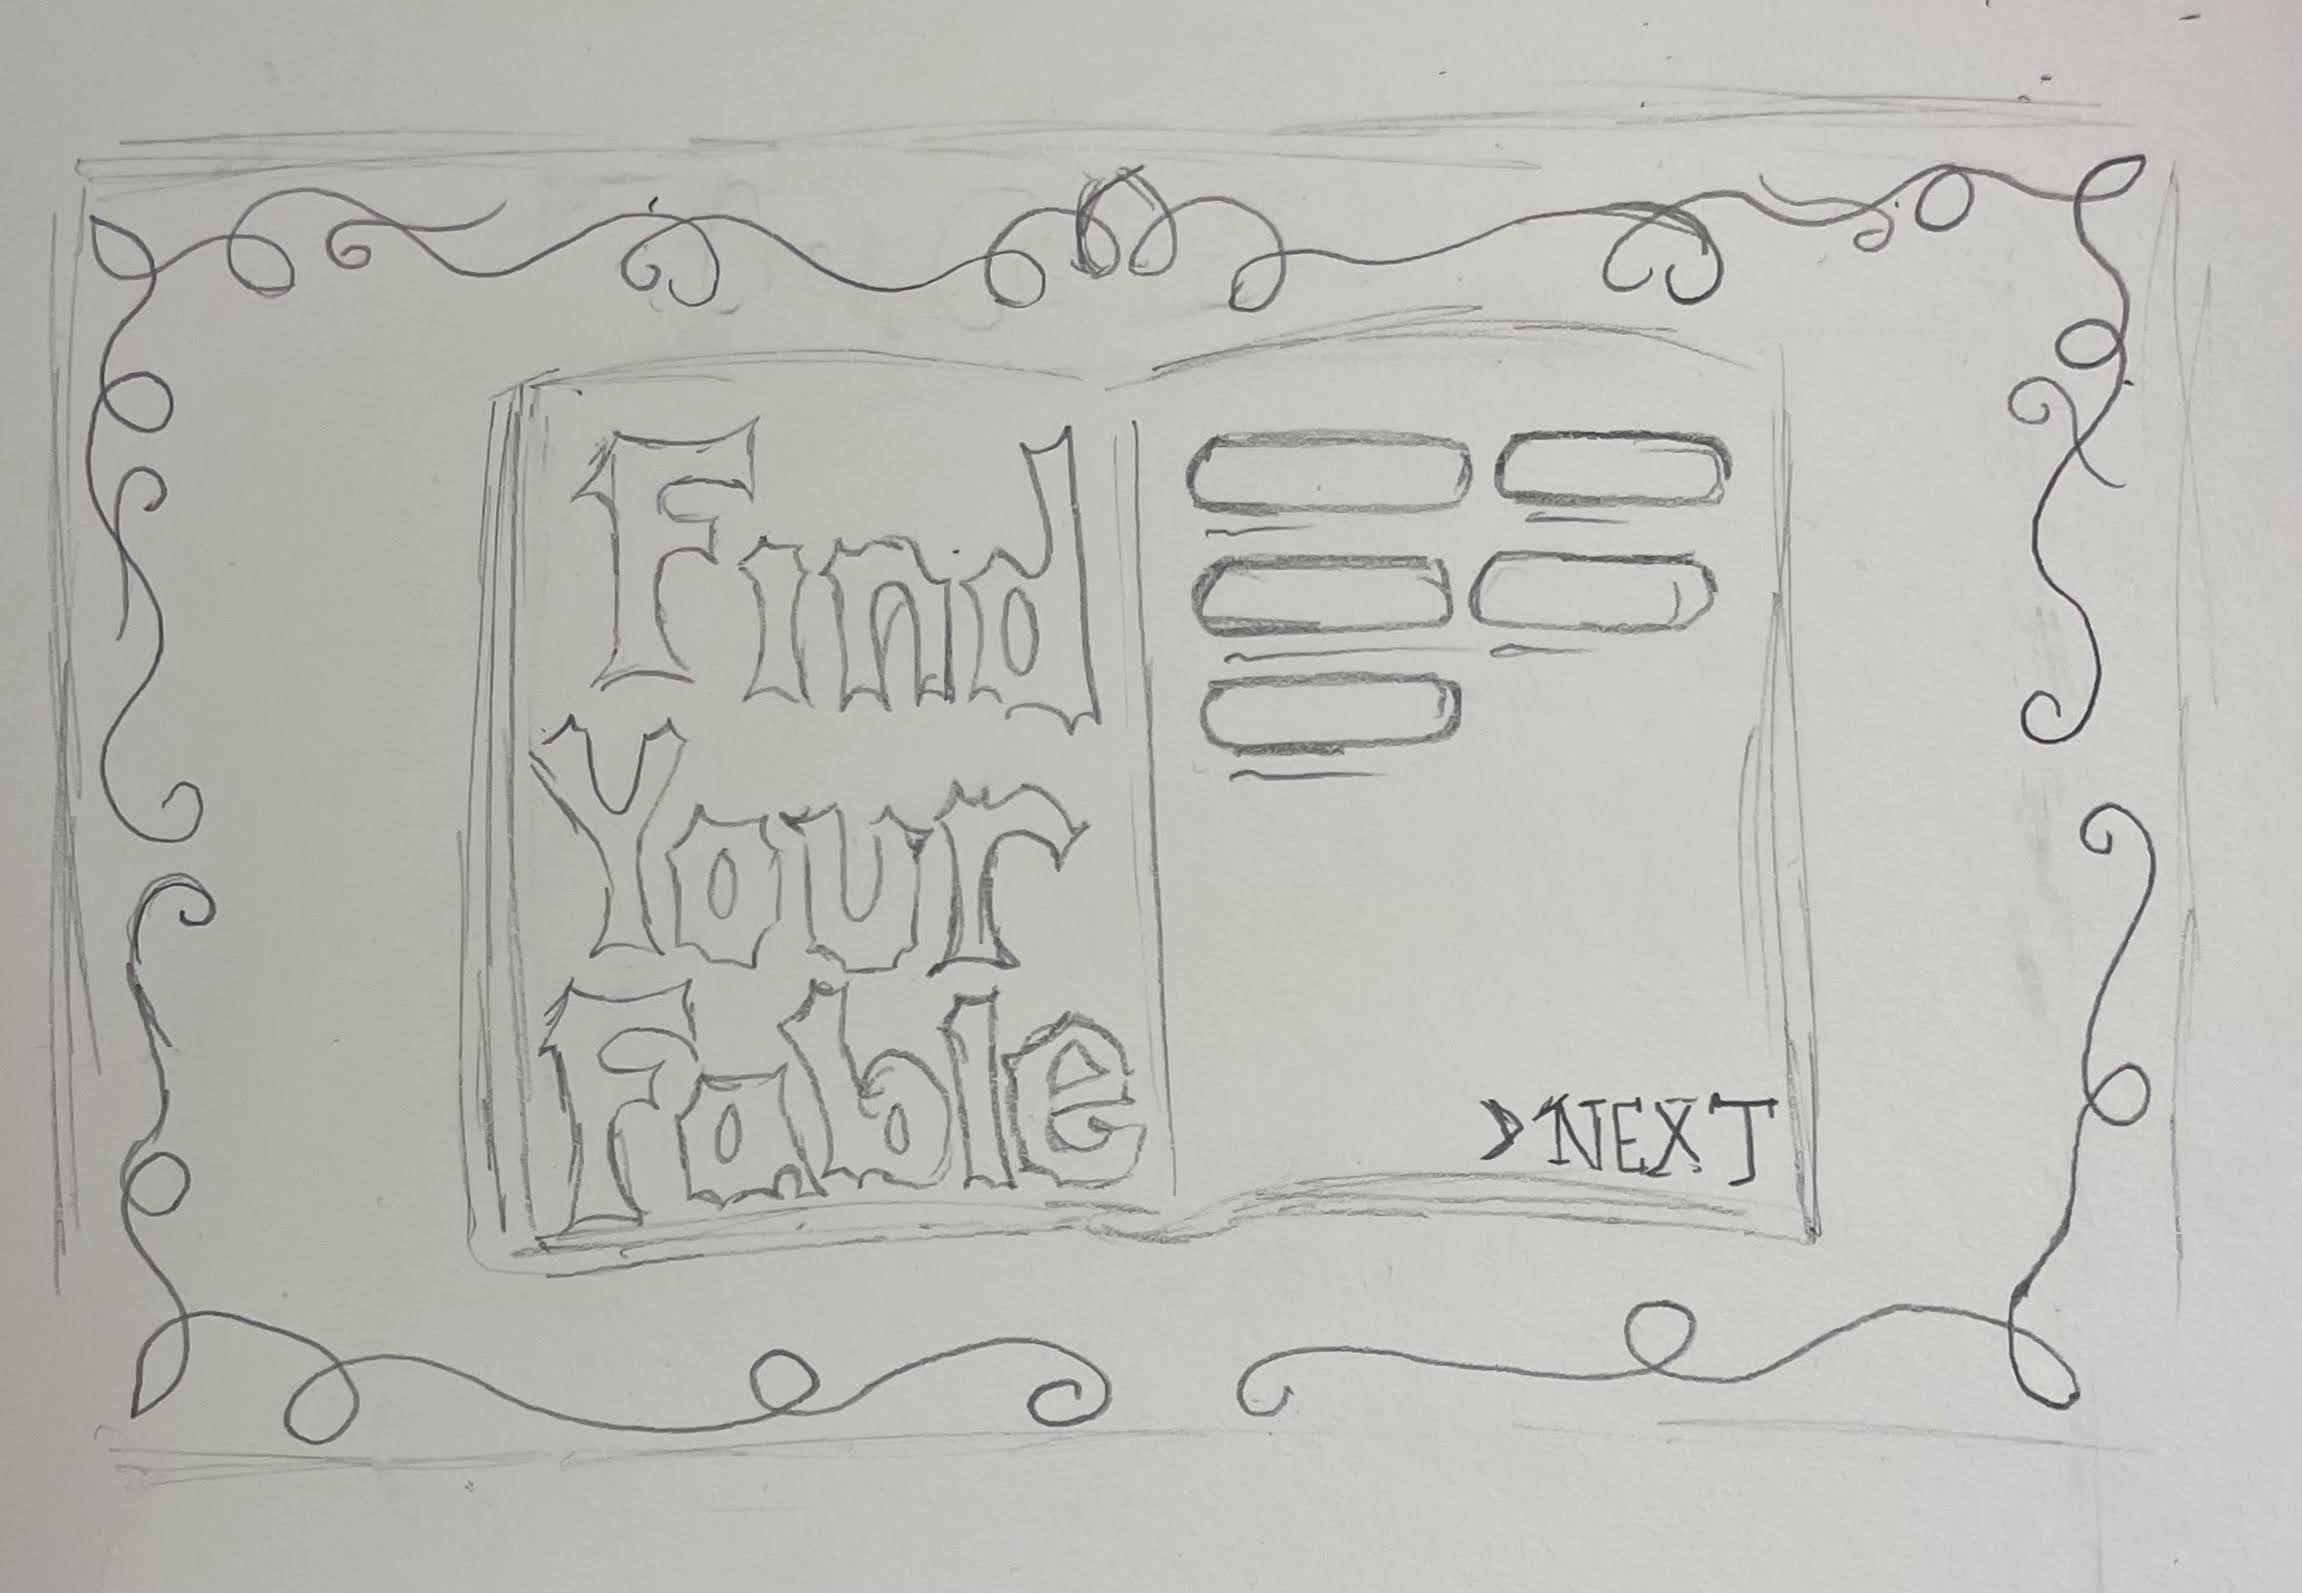 Find
Your
Fable
>NEXT